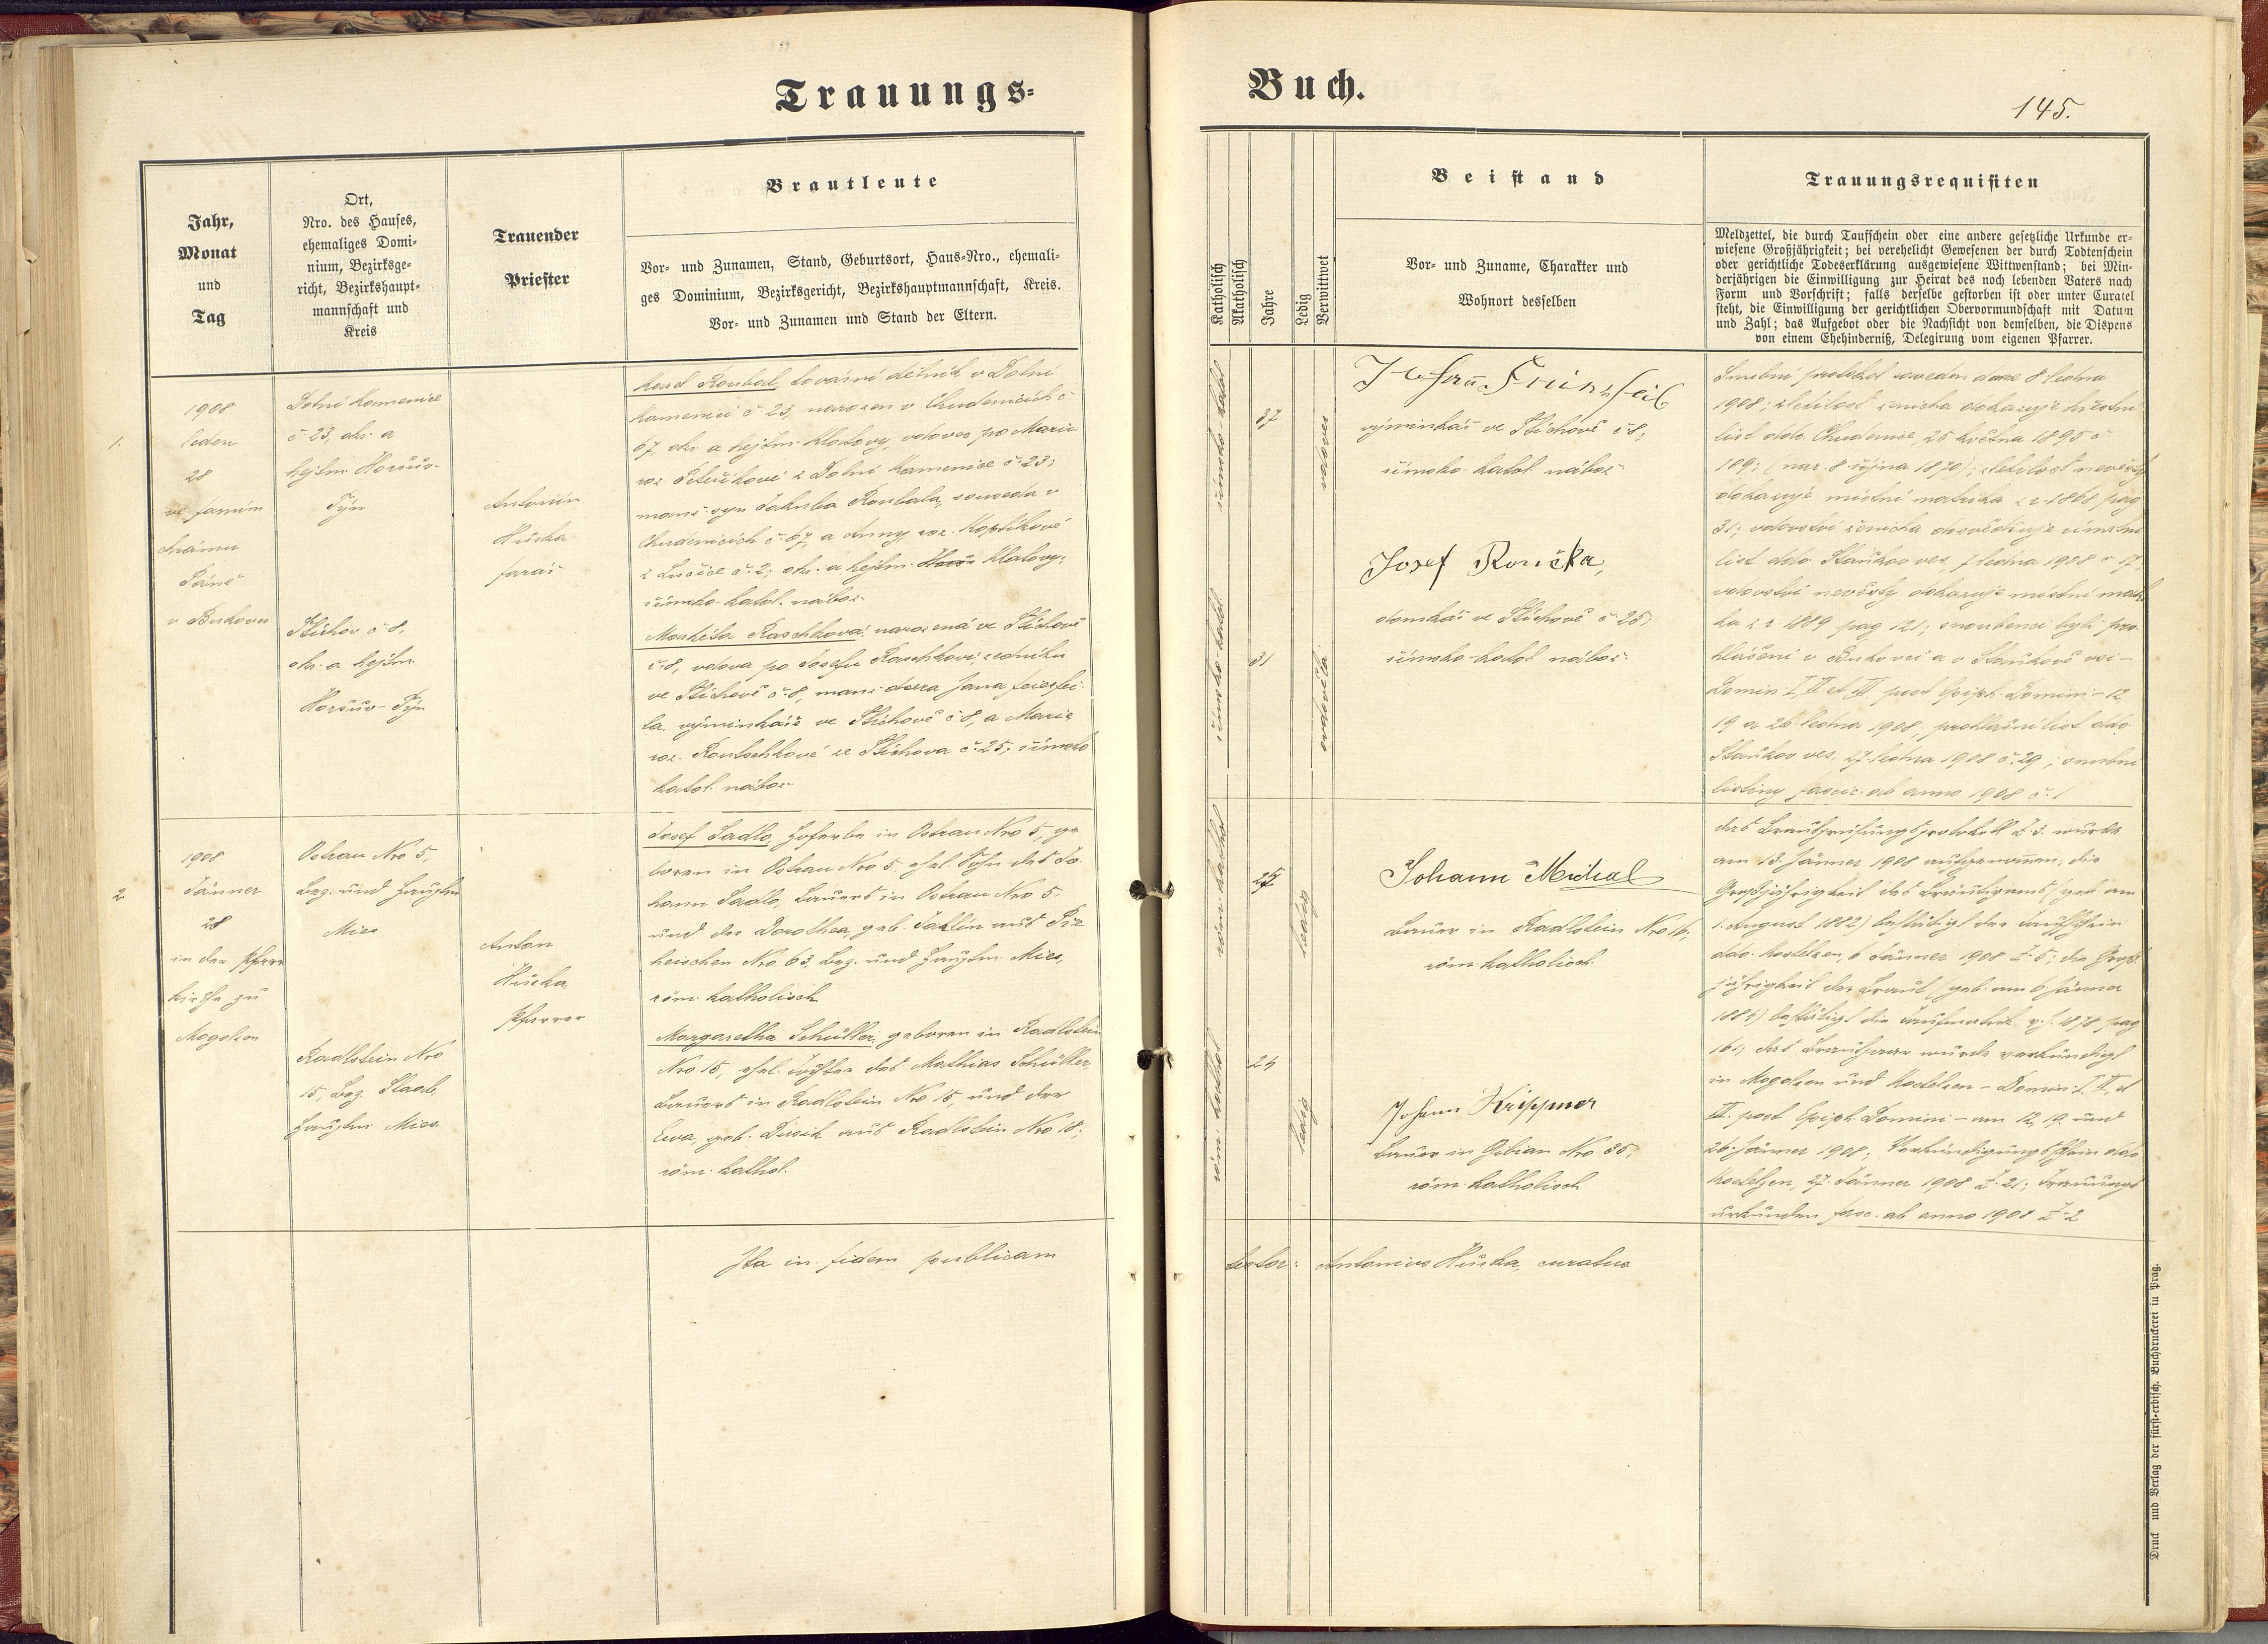 Trauungs-
Buch.
145.
Jahr,
Monat
und
Tag
Ort,
Nro. des Hauses,
ehemaliges Domi-
nium, Bezirksge-
richt, Bezirkshaupt-
mannschaft und
Kreis
Trauender
Priester
Brautleute
Vor- und Zunamen, Stand, Geburtsort, Haus-Nro., ehemali-
ges Dominium, Bezirksgericht, Bezirkshauptmannschaft, Kreis.
Vor- und Zunamen und Stand der Eltern.
Katholisch
Akatholisch
Jahre
Ledig
Verwittwet
Beistand
Vor- und Zuname, Charakter und
Wohnort desselben
Trauungsrequisiten
Meldzettel, die durch Taufschein oder eine andere gesetzliche Urkunde er-
wiesene Großjährigkeit; bei verehelicht Gewesenen der durch Todtenschein
oder gerichtliche Todeserklärung ausgewiesene Wittwenstand; bei Min-
derjährigen die Einwilligung zur Heirat des noch lebenden Vaters nach
Form und Vorschrift; falls derselbe gestorben ist oder unter Curatel
steht, die Einwilligung der gerichtlichen Obervormundschaft mit Datum
und Zahl; das Aufgebot oder die Nachsicht von demselben, die Dispens
von einem Ehehinderniß, Delegirung vom eigenen Pfarrer.
1.
1908
leden
28
ve farním
chrámu
Páně
v Bukovu
Dolní Kamenice
č 23, okr. a
hejtm. Horšův-
Týn
Stichov č 8,
okr. a hejtm.
Horšův-Týn
Antonín
Hůrka
farář
Roubal, tovární dělník v Dolní
Kamenici č 23, narozen v Chudenicích č
67, okr. a hejtm. Klatovy, vdovec po Marii
z Dolní Kamenice č. 23;
manž. syn Jakuba Roubala, souseda v
Chudenicích č. 67, a Anny, roz. Koptíkové
z Lučice č. 2, okr. a hejtm. Klatovy,
římsko-katol. nábož.
Markéta Raschková, narozená ve Stichově
č 8, vdova po Josefu Raschkovi, zedníku
ve Stichově č 8, manž. dcera Jana
výminkáře ve Stichově č 8, a Marie
roz. ze Stichova č. 25, římsko
katol. nábož.
římsko-katol.
37
vdovec
římsko-katol.
31
ovdověla
výminkář ve Stichově č 8,
římsko-katol. nábož.
Josef Roučka,
domkář ve Stichově č 25
římsko-katol nábož.
Snubní protokol zaveden dne 8 ledna
1908; zletilost ženicha dokazuje křestní
list ddo. Chudenice, 25 května 1895 č
109; (nar. 8 října 1870); zletilost nevěsty
dokazuje místní matrika z r. 1868 pag
31; vdovství ženicha dosvědčuje úmrtní
list ddo Staňkov ves, 7 ledna 1908 č 17
vdovství nevěsty dokazuje místní matri
ka z r 1889 pag 121; snoubenci byli pro
hlášeni v Bukovci a v Staňkově vsi –
Domin. I, II et III. post Epiph. Domini – 12,
19 a 26 ledna 1908; prohlašní list ddo
Staňkov ves, 27. ledna 1908 č. 29; snubní
listiny fascic. ab anno 1908 č. 1
2
1908
Jänner
28
in der Pfarr
kirche zu
Mogolzen
Ostrau Nro 5,
Bez. und Hauptm
Mies
Radlstein Nro
15, Bez. Staab,
Hauptm Mies.
Anton
Hůrka
Pfarrer
Josef Sadlo, Hoferbe in Ostrau Nro 5, ge
boren in Ostrau Nro 5, ehel. Sohn des Jo
hann Sadlo, Bauers in Ostrau Nro 5.
und der Dorothea, geb. aus
Nro 63, Bez. und Hauptm. Mies,
röm. katholisch
Margaretha Schüller, geboren in Radlstein
Nro 15, ehel. Tochter des Mathias Schüller,
Bauers in Radlstein Nro 15, und der
Ewa, geb. aus Radlstein Nro 18;
röm. kathol.
röm. kathol
25
ledig
röm. kathol
24
ledig
Johann Michal
Bauer in Radlstein Nro 16,
röm katholisch.
Johann Krippner
Bauer in Nro 35,
röm. katholisch
Das Brautprüfungsprotokoll Z 3. wurde
am 13. Jänner 1908 aufgenommen; die
Großjährigkeit des Bräutigams (geb. am
1. August 1882) bestätigt der Taufschein
ddo. Kostelzen, 6 Jänner 1908 Z. 6; die Groß
jährigkeit der Braut (geb. am 6 Jänner
bestätigt die Taufmatrik v. J. 1878 pag
161; das Brautpaar wurde verkündigt
in Mogolzen und Kostelzen – Domin. I, II, et
III. post Epiph. Domini – am 12, 19. und
26. Jänner 1908; Verkündigungsschein ddo
Kostelzen, 27. Jänner 1908 Z. 21; Trauungs
urkunden fasc. ab anno 1908 Z. 2
Ita in fidem publicam
testor: Antonius Hůrka, curatus
Druck und Verlag der fürst-erbisch. Buchdruckerei in Prag.